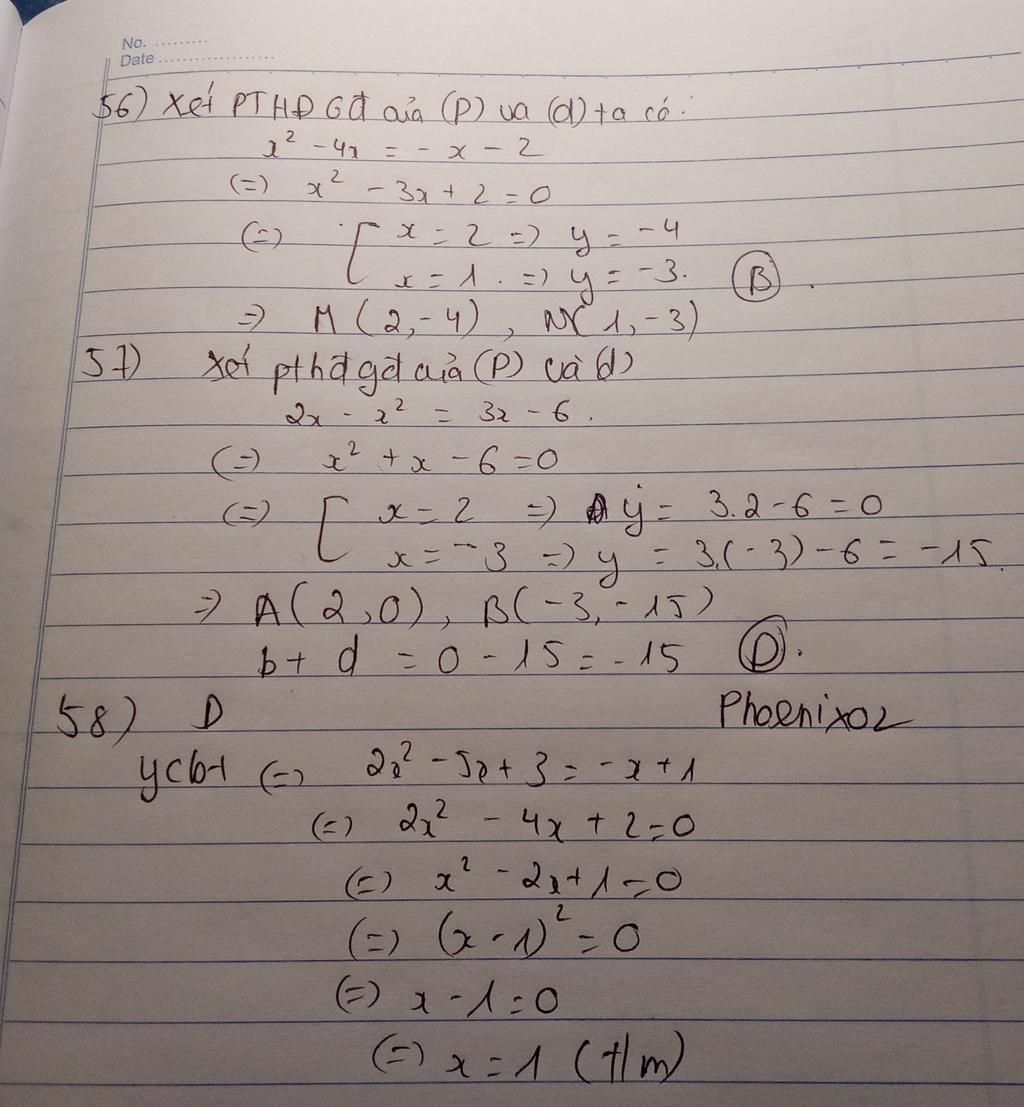 No. .........
Date ...................
56) Xét PTHĐGĐ của (P) va (d) ta có:
x² - 4x = - x - 2
(=) x² - 3x + 2 = 0
(=) [ x = 2 => y = -4
x = 1 => y = -3. (B) .
=> M (2, -4), N( 1, -3)
57) Xét pthđgđ của (P) và (d)
2x - x² = 3x - 6.
(=) x² + x - 6 = 0
(=) [ x = 2 => y = 3.2 - 6 = 0
x = -3 => y = 3.(-3) - 6 = -15.
=> A(2,0), B(-3, -15)
b + d = 0 - 15 = -15 (D).
58) D Phoenix02
ycbt (=) 2x² - 5x + 3 = -x + 1
(=) 2x² - 4x + 2 = 0
(=) x² - 2x + 1 = 0
(=) (x - 1)² = 0
(=) x - 1 = 0
(=) x = 1 (t/m)